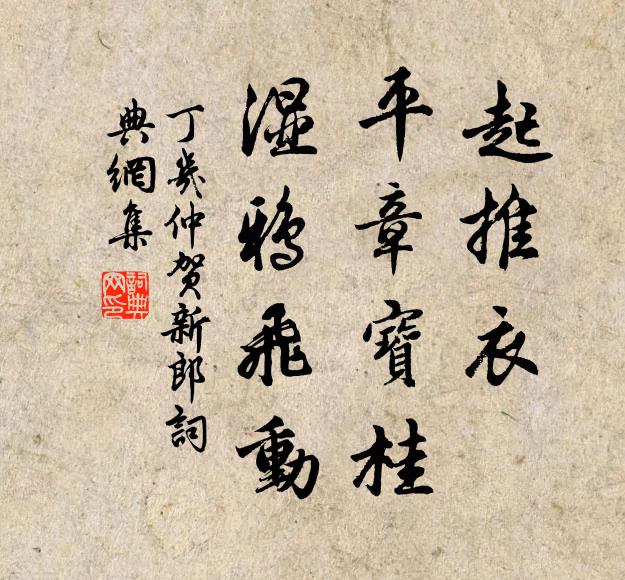 起推衣
平章寶桂
濕鴉飛動
丁幾仲賀新郎詞
典網集
詞典
网印